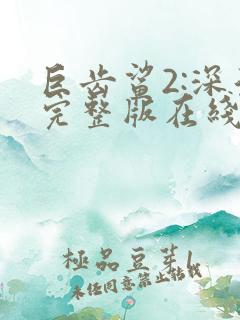 巨齿鲨2:深
完整版在线
極品豆芽
未经同意禁止转载